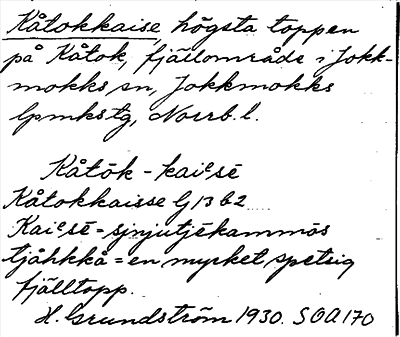 Kåtokkaise högsta toppen
på Kåtok, fjällområde i Jokk-
mokks sn, Jokkmokks
lpmkstg, Norrb. l.
Kåtōk - kaiᵉsē
Kåtokkaisse G 13 b2
Kaiᵉsē = sjnjutjēkammōs
tjåhkkå = en mycket spetsig
fjälltopp.
H. Grundström 1930. SOA 170